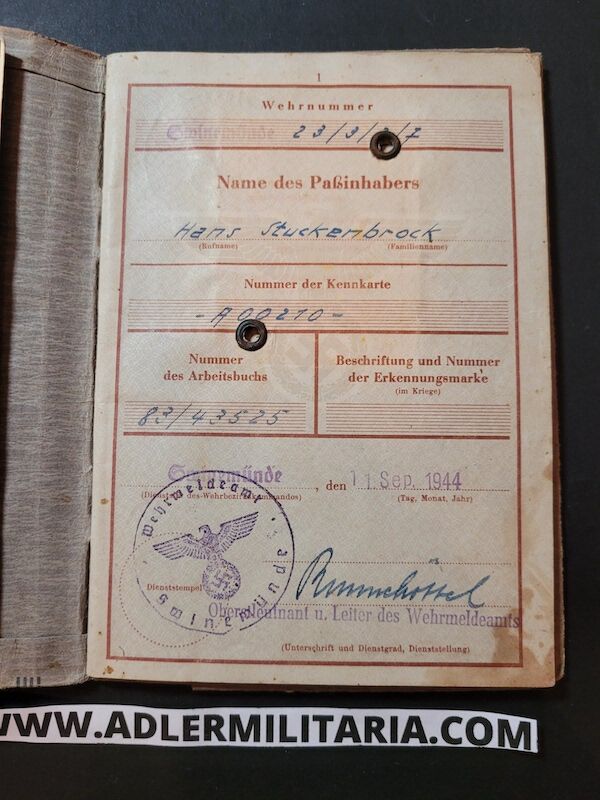 1
Wehrnummer
Swinemünde 23/3/2/7
Name des Paßinhabers
Hans Stuckenbrock
(Rufname) (Familienname)
Nummer der Kennkarte
- A 00210 -
Nummer
des Arbeitsbuchs
83/43525
Beschriftung und Nummer
der Erkennungsmarke
(im Kriege)
Swinemünde, den 11. Sep. 1944
(Dienstsitz des Wehrbezirkskommandos) (Tag, Monat, Jahr)
Wehrmeldeamt
Swinemünde
Dienststempel
Oberstleutnant u. Leiter des Wehrmeldeamts
(Unterschrift und Dienstgrad, Dienststellung)
WWW.ADLERMILITARIA.COM